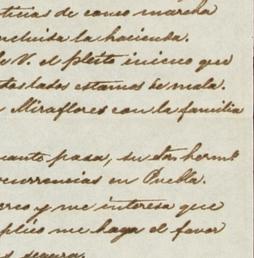 noticias de como marcha
incluida la hacienda.
de V. el pleito inicuo que
todos lados estamos de mala.
Miraflores con la familia
cuanto pasa, su
ocurrencias en Puebla.
y me interesa que
suplico me haga el favor
segura.